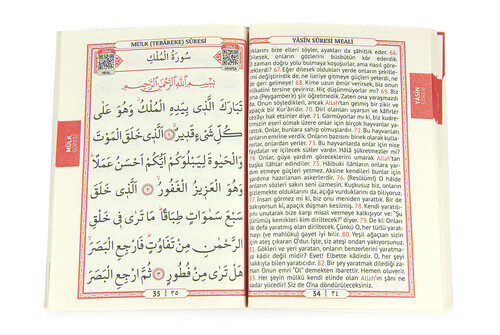 MÜLK (TEBÂREKE) SÛRESİ
سُورَةُ الْمُلْكِ
بِسْمِ اللّٰهِ الرَّحْمٰنِ الرَّحِيمِ
تَبَارَكَ الَّذِى بِيَدِهِ الْمُلْكُ وَهُوَ عَلٰى
كُلِّ شَىْءٍ قَدِيرٌ ١ اَلَّذِى خَلَقَ الْمَوْتَ
وَالْحَيٰوةَ لِيَبْلُوَكُمْ اَيُّكُمْ اَحْسَنُ عَمَلًا
وَهُوَ الْعَزِيزُ الْغَفُورُ ٢ اَلَّذِى خَلَقَ
سَبْعَ سَمٰوَاتٍ طِبَاقًا مَا تَرٰى فِى خَلْقِ
الرَّحْمٰنِ مِنْ تَفَاوُتٍ فَارْجِعِ الْبَصَرَ
هَلْ تَرٰى مِنْ فُطُورٍ ٣ ثُمَّ ارْجِعِ الْبَصَرَ
35 | ٣٥
MÜLK
SÛRESİ
YÂSÎN SÛRESİ MEALİ
klarını bize elleri söyler, ayakları da şâhitsik eder. 66.
O zaman doğru yolu bulmaya koşuşurlar, ama nasıl göre-
67. Eğer dilesek oldukları yerde onların şekille-
rini değiştirirdik de, ne ileriye gitmeye güçleri yeterdi, ne
geri gelmeye! 68. Kime uzun ömür verirsek, biz onun
tersine çeviririz. Hiç düşünmüyorlar mı? 69. Biz
(Peygamber'e) şiir öğretmedik. Zaten ona yaraşmazdı
Onun söyledikleri, ancak Allah'tan gelmiş bir zikir ve
apaçık bir Kur'ân'dır. 70. Diri olanları uyarsın ve kâfirler
azâbı hak etsinler diye. 71. Görmüyorlar mı ki, biz kud-
retimizin eseri olmak üzere onlar için birçok hayvanlar ya-
rattık. Onlar, bunlara sahip olmuşlardır. 72. Bu hayvanları
onların emrine verdik. Onlardan bir kısmı binekleridir, bir
73. Bu hayvanlarda onlar için nice
faydalar ve içilecek sütler vardır. Hâlâ şükretmezler mi?
74. Onlar, güya yardım göreceklerini umarak Allah'tan
başka ilâhlar edindiler. 75. Hâlbuki ilâhların onlara yar-
dım etmeye güçleri yetmez. Aksine kendileri bunlar için
yardıma hazırlanan askerlerdir. 76. (Resûlüm!) O hâlde
onların sözleri sakın seni üzmesin. Kuşkusuz biz, onların
gizlemekte olduklarını da, açığa vurduklarını da biliyoruz.
77. İnsan görmez mi ki, biz onu meniden yarattık. Bir de
bakıyorsun ki, apaçık düşman kesilmiş. 78. Kendi yaratılı-
şını unutarak bize karşı misal vermeye kalkışıyor ve: "Şu
çürümüş kemikleri kim diriltecek?" diyor. 79. De ki: Onları
ilk defa yaratmış olan diriltecek. Çünkü O, her türlü yarat-
mayı (ve mahlûku) gayet iyi bilir. 80. Yeşil ağaçtan sizin
için ateş çıkaran O'dur. İşte, siz ateşi ondan yakıyorsunuz.
81. Gökleri ve yeri yaratan, onların benzerlerini yaratma-
ya kâdir değil midir? Evet! Elbette kâdirdir. O, her şeyi
hakkıyla bilen yaratıcıdır. 82. Bir şey yaratmak dilediği za-
man Onun emri "Ol" demekten ibarettir. Hemen oluverir.
83. Her şeyin mülkü kendi elinde olan Allah'ın şânı ne
kadar yücedir! Siz de O'na döndürüleceksiniz.
34 | ٣٤
YÂSÎN
SÛRESİ